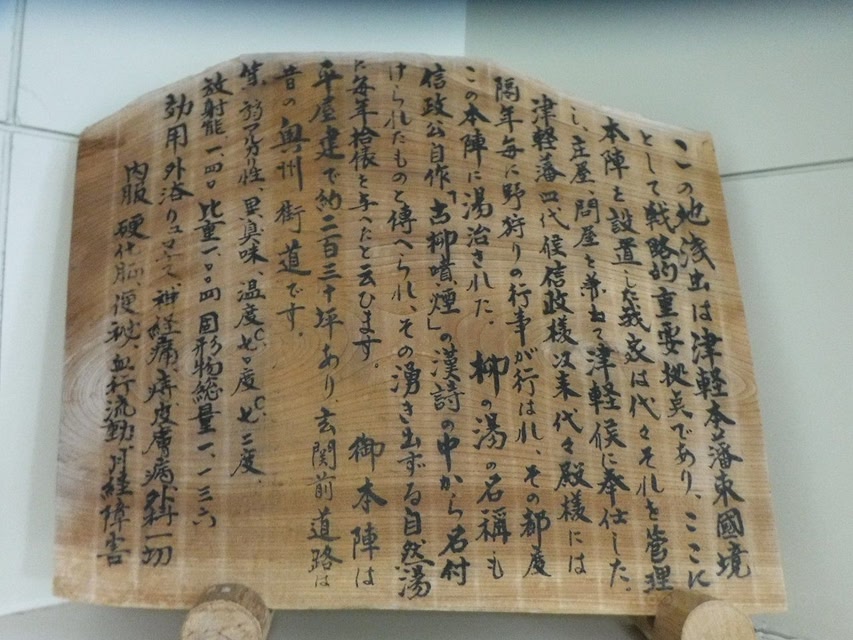 この地浅虫は津軽本藩東國境
として戦略的重要拠点であり、ここに
本陣を設置した我家は代々それを管理
し、庄屋、問屋を兼ねて津軽候に奉仕した。
津軽藩四代候信政様以来代々殿様には
隔年毎に野狩りの行事が行はれ、その都度
この本陣に湯治された。柳の湯の名稱も
信政公自作「古柳噴煙」の漢詩の中から名付
けられたものと傳へられ、その湧き出ずる自然湯
に毎年拾俵を与へたと云ひます。御本陣は
平屋建で約二百三十坪あり、玄関前道路は
昔の奥州街道です。
弱アルカリ性、異臭味、温度C七〇度C七二度、
放射能一、四〇比重一、〇〇四固形物総量一、一三六
効用外浴リュウマチス神経痛痔皮膚病外科一切
内服硬化脳、便秘、血行流動、月経障害